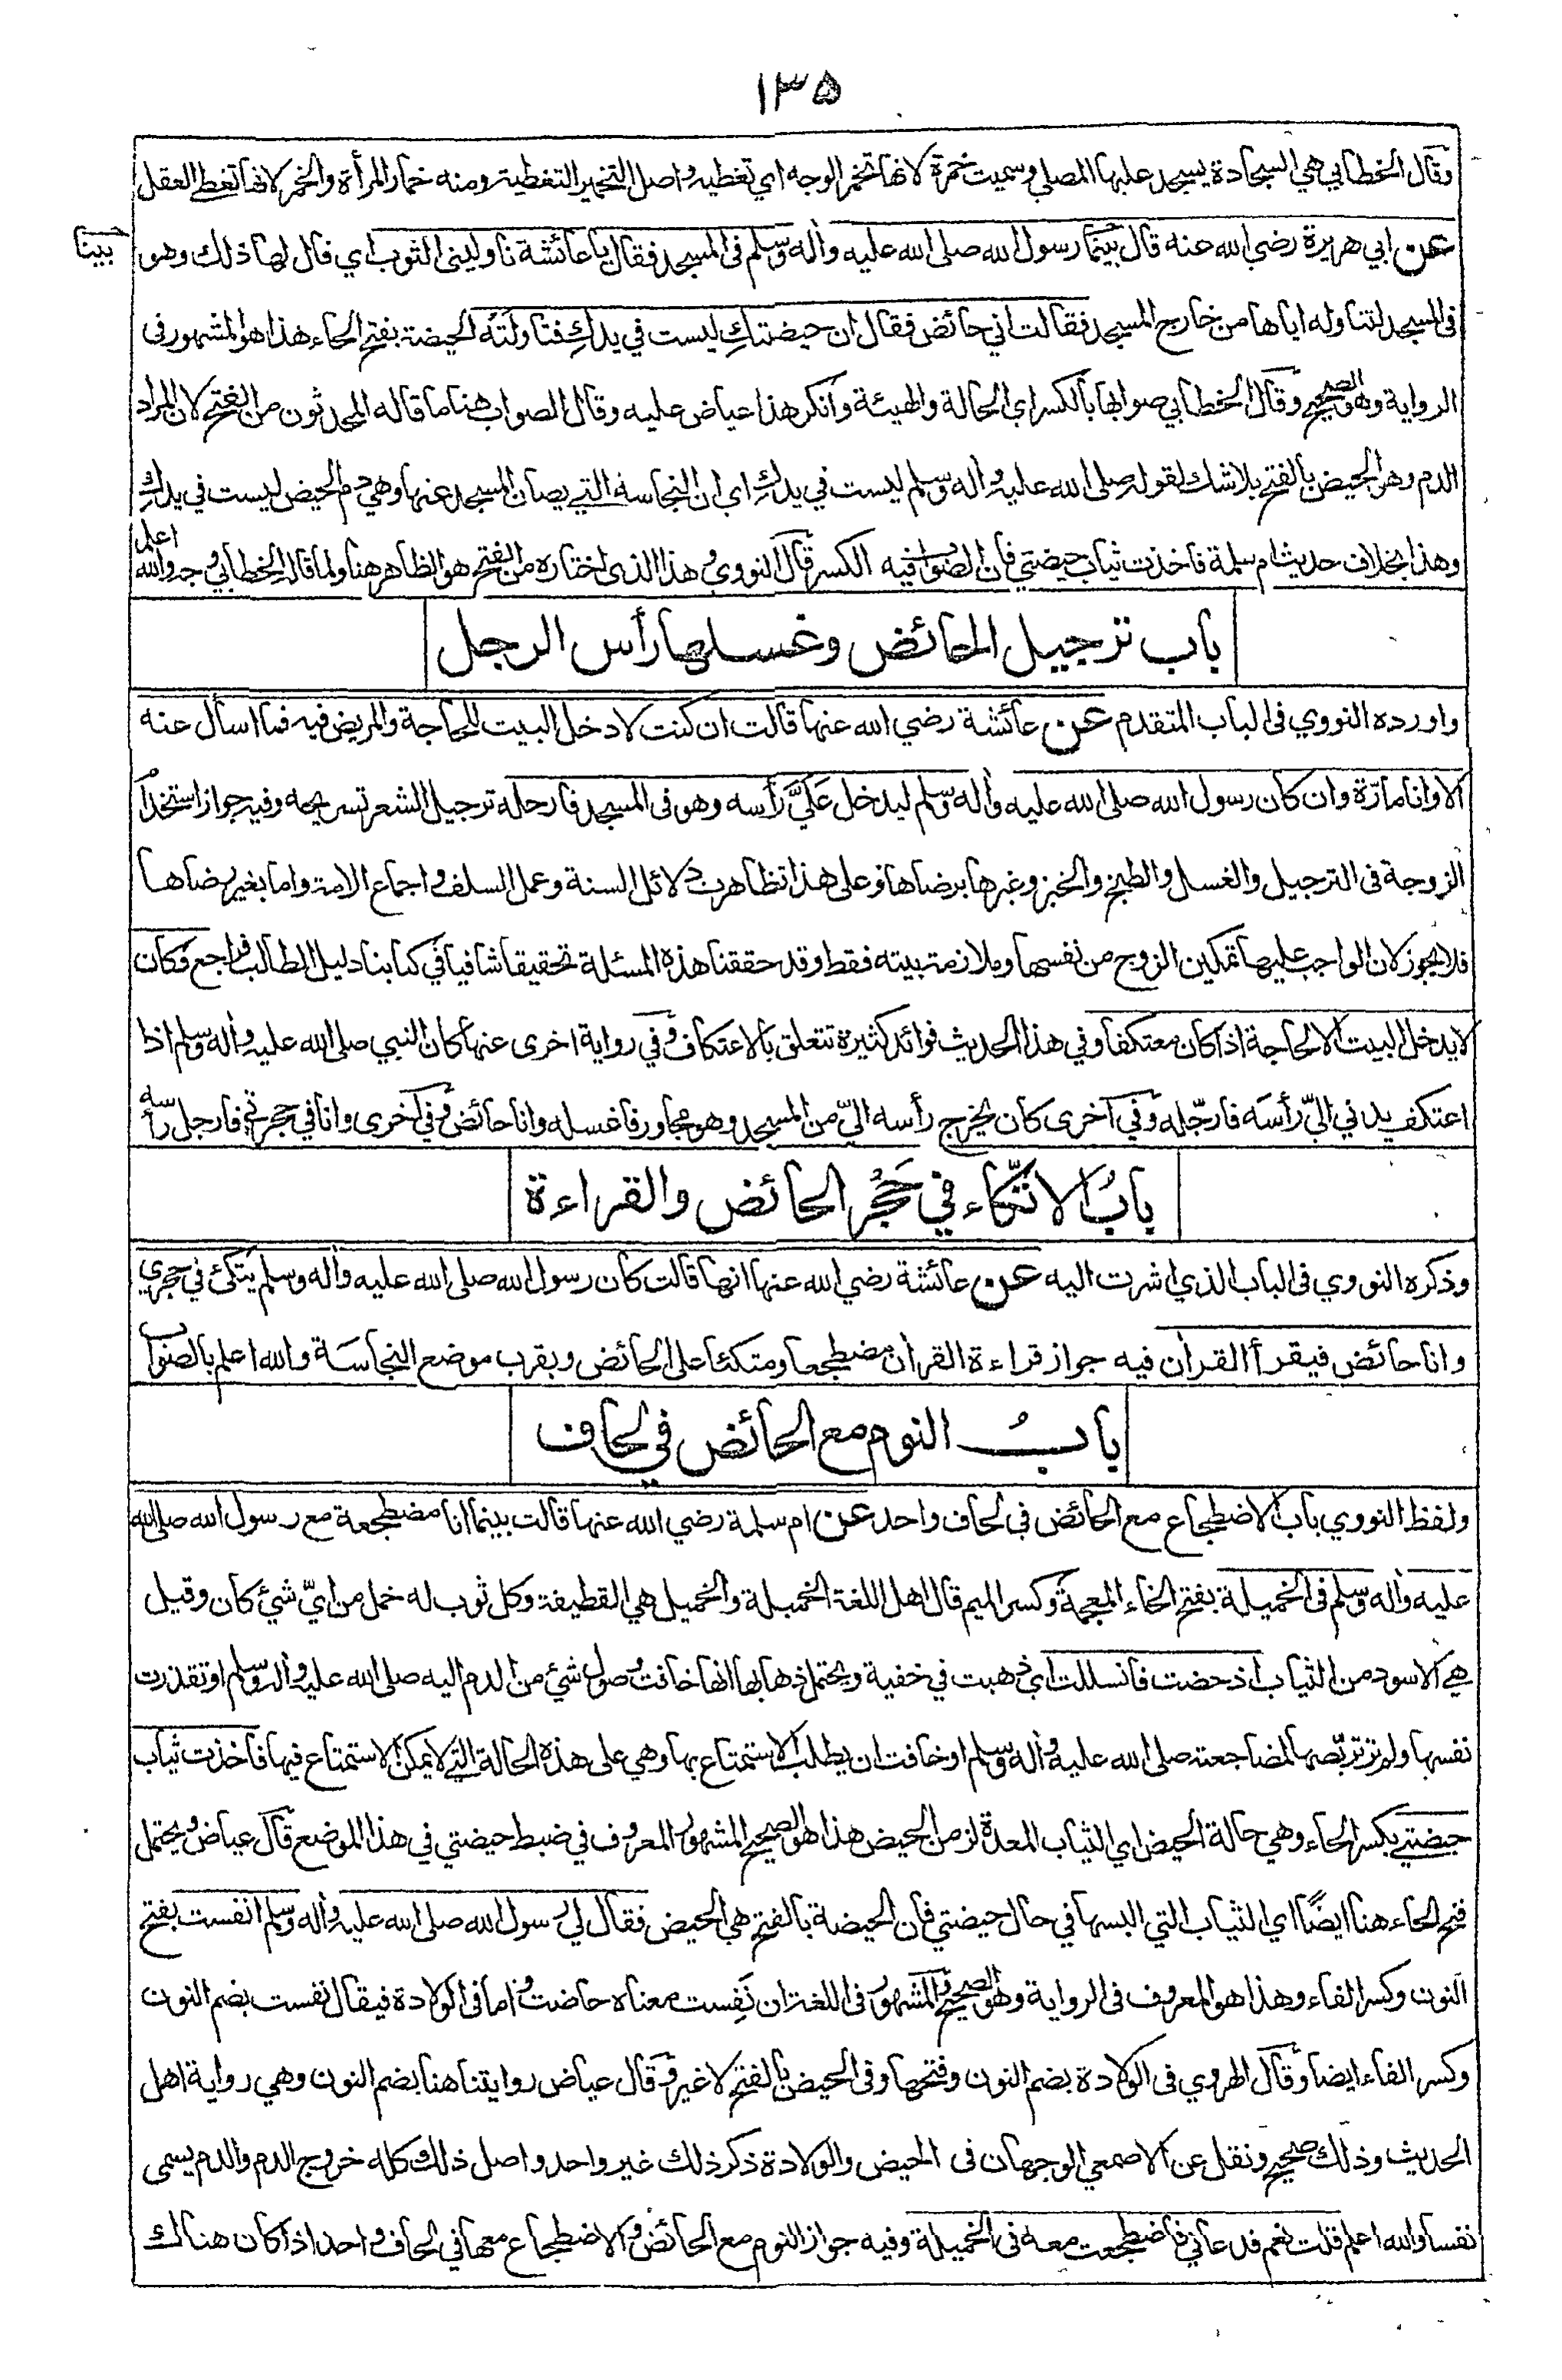 ١٣٥
وقال الخطابي هي السجادة يسجد عليها المصلي وسميت خمرة لانها تخمر الوجه اي تغطيه واصل التخمير التغطية ومنه خمار المرأة والخمر لانها تغطي العقل
عن ابي هريرة رضي الله عنه قال بينما رسول الله صلى الله عليه وأله وسلم فى المسجد فقال يا عائشة ناوليني الثوب اي قال لها ذلك وهو
بينا
فى المسجد لتناوله اياها من خارج المسجد فقالت اني حائض فقال ان حيضتكِ ليست في يدكِ فناولَتْه الحيضة بفتح الحاء هذا هو المشهور فى
الرواية وهو الصحيح وقال الخطابي صوابها بالكسر اي الحالة والهيئة وانكر هذا عياض عليه وقال الصواب هنا ما قاله المحدثون من الفتح لان المراد
الدم وهو الحيض بالفتح بلا شك لقوله صلى الله عليه وأله وسلم ليست في يدكِ اي ان النجاسة التي يصان المسجد عنها وهي دم الحيض ليست في يدكِ
وهذا بخلاف حديث ام سلمة فاخذت ثياب حيضتي فان الصواب فيه الكسر قال النووي وهذا الذي اختاره من الفتح هو الظاهر هنا ولما قاله الخطابي وجه والله اعلم
باب ترجيل الحائض وغسلها رأس الرجل
واورده النووي فى الباب المتقدم عن عائشة رضي الله عنها قالت ان كنت لادخل البيت للحاجة والمريض فيه فما اسأل عنه
الا وانا مارّة وان كان رسول الله صلى الله عليه وأله وسلم ليدخل عَلَيَّ رأسه وهو فى المسجد فارجله ترجيل الشعر تسريحه وفيه جواز استخدام
الزوجة فى الترجيل والغسل والطبخ والخبز وغيرها برضاها وعلى هذا تظاهرت دلائل السنة وعمل السلف واجماع الامة واما بغير رضاها
فلا يجوز لان الواجب عليها تمكين الزوج من نفسها وملازمة بيته فقط وقد حققنا هذه المسئلة تحقيقا شافيا في كتابنا دليل الطالب فراجع وكان
لا يدخل البيت الا لحاجة اذا كان معتكفا وفي هذا الحديث فوائد كثيرة تتعلق بالاعتكاف وفي رواية اخرى عنها كان النبي صلى الله عليه وأله وسلم اذا
اعتكف يدني اليّ رأسَه فارجّله وفي اخرى كان يخرج رأسه اليّ من المسجد وهو مجاور فاغسله وانا حائض وفي اخرى وانا في حجرتي فارجل رأسه
بابُ الاتّكاء في حَجْر الحائض والقراءة
وذكره النووي فى الباب الذي اشرت اليه عن عائشة رضي الله عنها انها قالت كان رسول الله صلى الله عليه وأله وسلم يتكئ في حجري
وانا حائض فيقرأ القرأن فيه جواز قراءة القرأن مضطجعا ومتكئا على الحائض وبقرب موضع النجاسة والله اعلم بالصواب
بابُ النوم مع الحائض في لحاف
ولفظ النووي باب الاضطجاع مع الحائض في لحاف واحد عن ام سلمة رضي الله عنها قالت بينما انا مضطجعة مع رسول الله صلى الله
عليه وأله وسلم فى الخميلة بفتح الخاء المعجمة وكسر الميم قال اهل اللغة الخميلة والخميل هي القطيفة وكل ثوب له خمل من ايّ شيئ كان وقيل
هي الاسود من الثياب اذ حضت فانسللت اي ذهبت في خفية ويحتمل ذهابها انها خافت وصول شيئ من الدم اليه صلى الله عليه وأله وسلم او تقذرت
نفسها ولم تر تربّصها لمضاجعته صلى الله عليه وأله وسلم او خافت ان يطلب الاستمتاع بها وهي على هذه الحالة التي لا يمكن الاستمتاع فيها فاخذت ثياب
حيضتي بكسر الحاء وهي حالة الحيض اي الثياب المعدة لزمن الحيض هذا هو الصحيح المشهور المعروف في ضبط حيضتي في هذا الموضع قال عياض ويحتمل
فتح الحاء هنا ايضًا اي الثياب التي البسها في حال حيضتي فان الحيضة بالفتح هي الحيض فقال لي رسول الله صلى الله عليه وأله وسلم انفست بفتح
النون وكسر الفاء وهذا هو المعروف فى الرواية وهو الصحيح المشهور فى اللغة ان نَفِست معناه حاضت واما فى الولادة فيقال نفست بضم النون
وكسر الفاء ايضا وقال الهروي فى الولادة بضم النون وفتحها وفى الحيض بالفتح لا غير وقال عياض روايتنا هنا بضم النون وهي رواية اهل
الحديث وذلك صحيح ونقل عن الاصمعي الوجهان فى الحيض والولادة ذكر ذلك غير واحد واصل ذلك كله خروج الدم والدم يسمى
نفسا والله اعلم قلت نعم فدعاني فاضطجعت معه فى الخميلة وفيه جواز النوم مع الحائض والاضطجاع معها في لحاف واحد اذا كان هناك